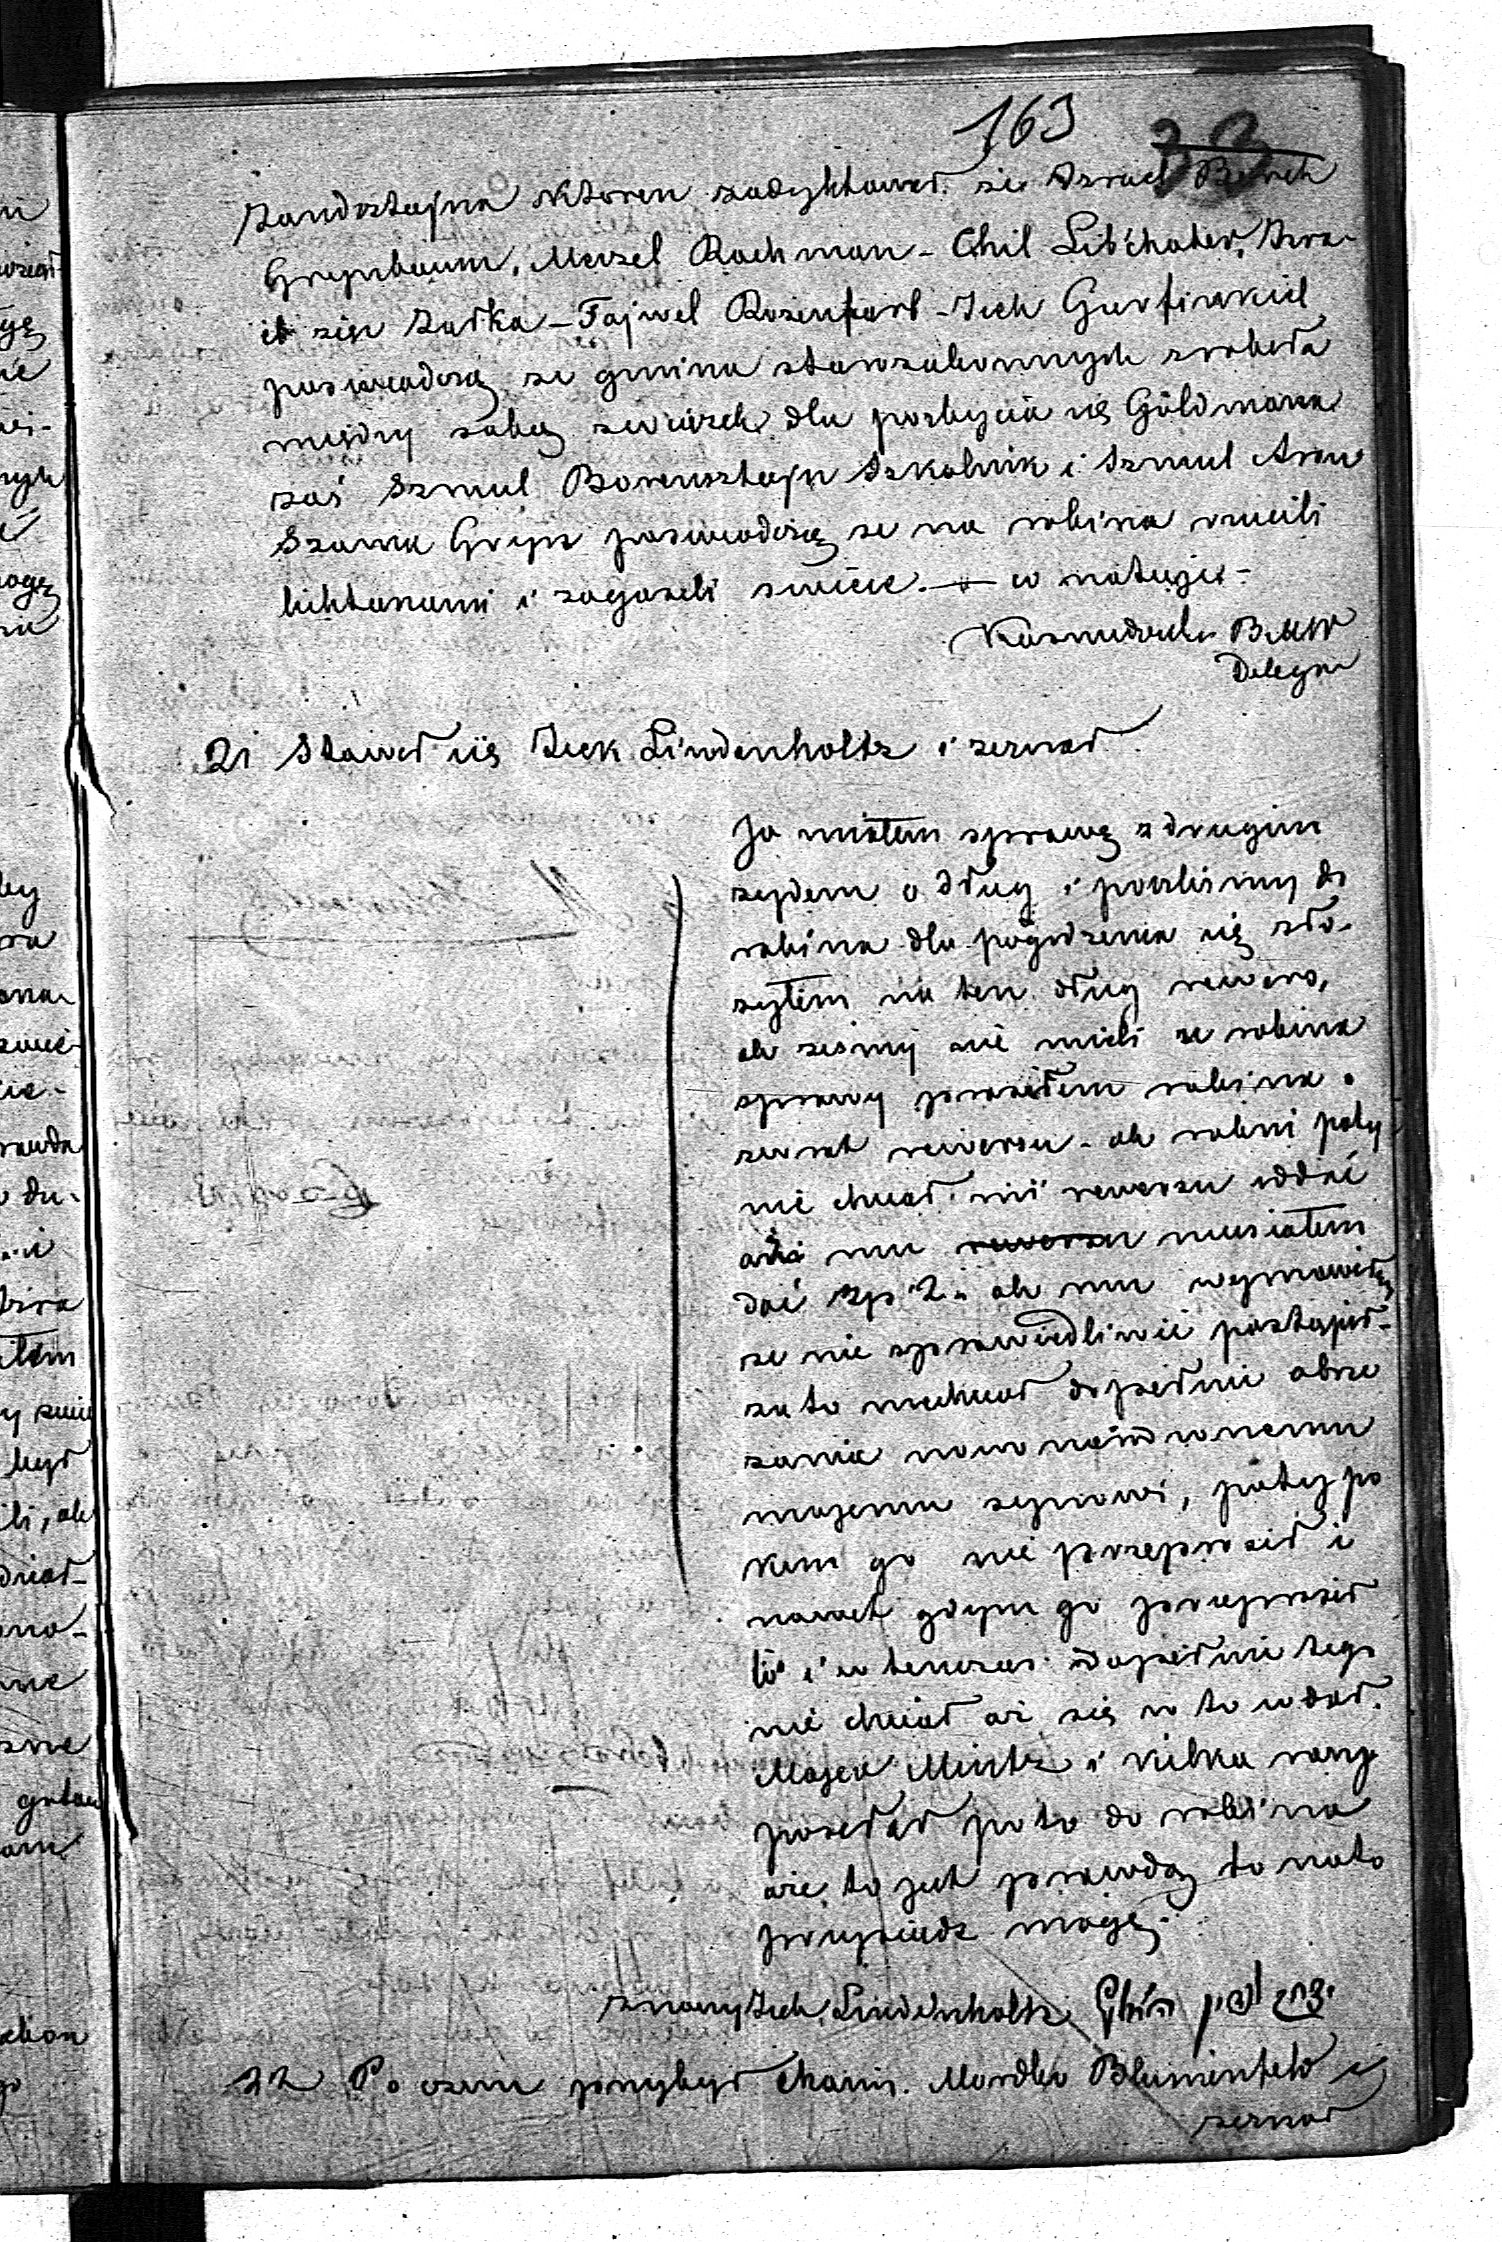 163
33
Sandsztajna ktoren zadyktował że Izrael Berek
Grynbaum, Meszel Rochman - Chil Libchaber, Izra-
el zięc Zatka - Fajwel Rozenfarb - Icek Gurfinkiel
poswiadczą że gmina starozakonnych zrobiła
między sobą związek dla pozbycia się Goldmana
zaś Szmul Borensztajn Szkolnik i Szmul Aron
Szama Gryn poswiadczą że na rabina rzucili
lichtarami i zagaseli swiece. — w
BMW
Deleg
21 Stawił się Icek Lindenholtz i zeznał
Ja miałem sprawę z drugim
żydem o dług i poszlismy do
rabina dla pogodzenia się zło-
żyłem na ten dług rewers,
ale żesmy nie mieli u rabina
sprawy prosiłem rabina o
zwrot rewersu - ale rabin poty
nie chciał mi rewersu oddać
aż mu rewersu musiałem
dać zp 2. ale mu wymowiłem
że nie sprawiedliwie postąpił -
za to niechciał dopełnic obrze
zania nowo narodzonemu
mojemu synowi, póty po
kim go nie przeprosił i
nawet gdym go przeprosił
to i w tenczas dopełnić tego
nie chciał aż się w to wdał
Majer Mintz i kilka razy
posełał po to do rabina
a że to jest prawdą to na to
przysiądz mogę.
Icek Lindenholtz
22 Po czem przybył Chaim Mordka Blumenfeld i
zeznał